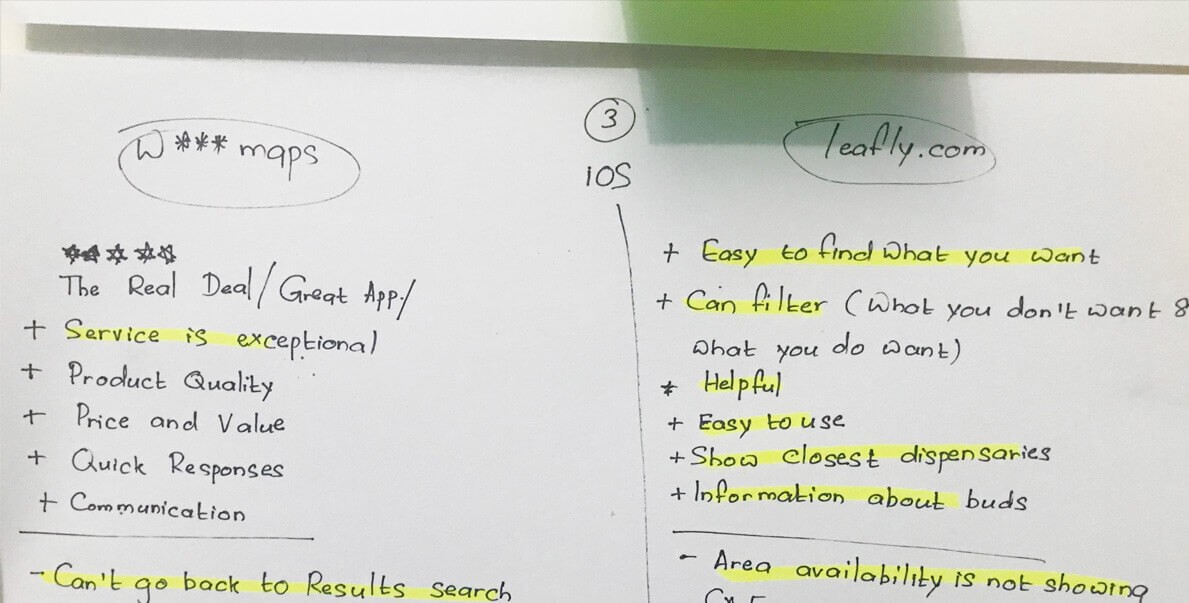 3
iOS
W***maps
★★★★★
The Real Deal/Great App/
+ Service is exceptional
+ Product Quality
+ Price and Value
+ Quick Responses
+ Communication
- Can't go back to Results search
leafly.com
+ Easy to find what you want
+ Can filter (What you don't want &
what you do want)
* Helpful
+ Easy to use
+ Show closest dispensaries
+ Information about buds
- Area availability is not showing